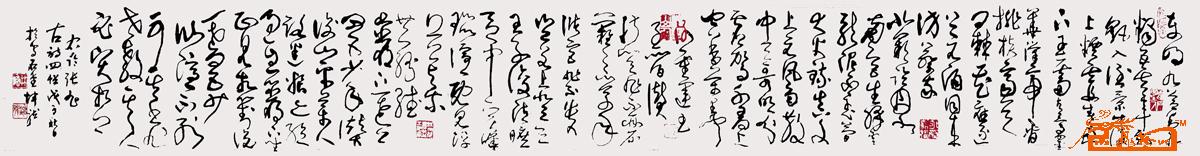 东明九芝盖
北烛五云车
飘飖入倒景出没
上烟霞春泉
下玉霤青鸟向金
华汉帝看
桃核齐侯
问棘花应逐
上元酒同来
访蔡家
北阙临丹水
南宫生绛云
龙泥印玉策
大火炼真文
上元风雨散
中天歌吹分
灵驾千寻上
空香万里闻
谢灵运王
子晋赞
淑质非不丽难以
之百年
储宫非不贵
岂若上登天
王子复清旷
区中实哗
嚣喧既见浮
丘公与尔共
纷繙
岩下一老公
四五少年赞
衡山采药人
路迷粮亦绝
过息岩下坐
正见相对说
一老四五少
仙隐不可别
其书非世教其人
必贤哲
右临张旭
古诗四帖戊子